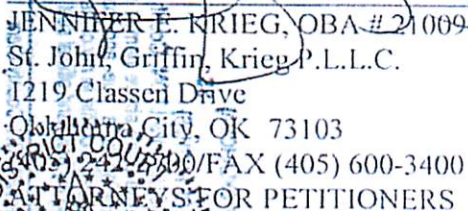 JENNIFER E. KRIEG, OBA # 21009
St. John, Griffin, Krieg P.L.L.C.
1219 Classen Drive
Oklahoma City, OK 73103
(405) /FAX (405) 600-3400
ATTORNEYS FOR PETITIONERS